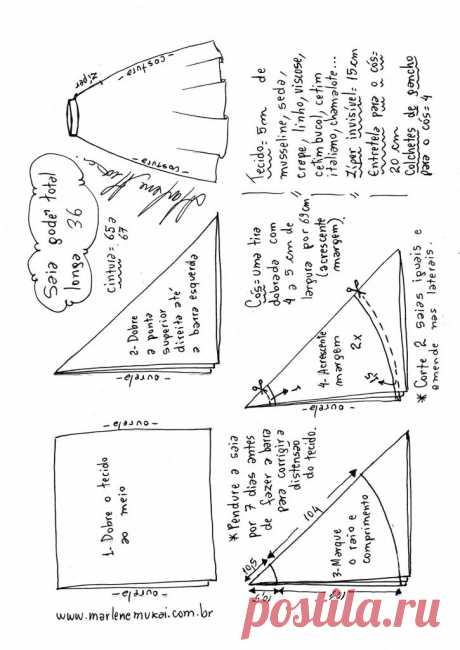 Saia godê total
longa 36
Cintura = 65 a
67
Zíper
- costura -
- costura -
Marlene Mukai
Tecido = 5m de
musseline, seda,
crepe, linho, viscose,
cetim bucol, cetim
italiano, chamalote...
Zíper invisível = 15cm
Entretela para o cós =
20 cm
Colchetes de gancho
para o cós = 4
1- Dobre o tecido
ao meio
- ourela -
- ourela -
2- Dobre
a ponta
superior
direita até
a barra esquerda
- ourela -
Cós = uma tira
dobrada com
4 a 5 cm de
largura por 69 cm
(acrescente
margem).
* Pendure a saia
por 7 dias antes
de fazer a barra
para corrigir a
distensão
do tecido.
3- Marque
o raio e
comprimento
10,5
104
10,5
104
4- Acrescente
margem
2x
- ourela -
1
1,5
* Corte 2 saias iguais e
emende nas laterais.
www.marlenemukai.com.br
postila.ru